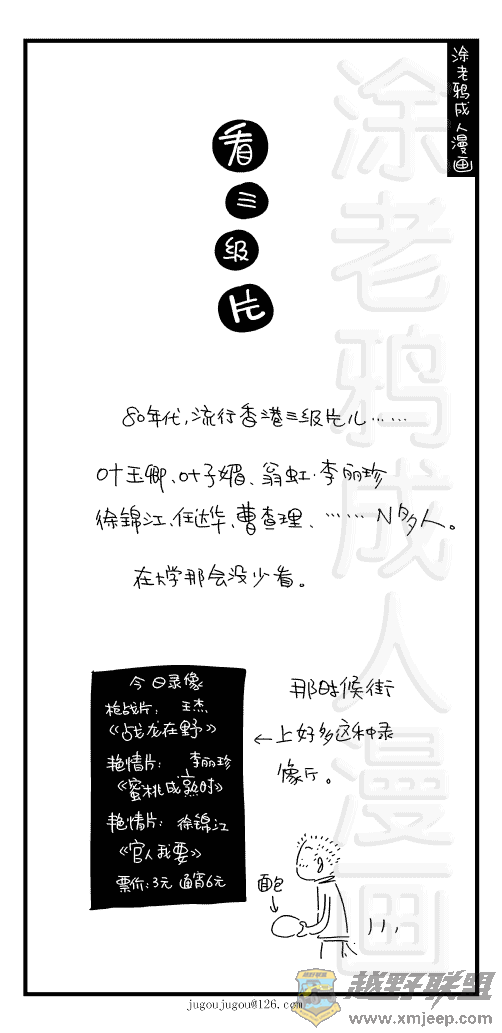 涂老鸦成人漫画
涂老鸦成人漫画
看三级片
80年代,流行香港三级片儿……
叶玉卿、叶子媚、翁虹·李丽珍
徐锦江、任达华、曹查理、……N多人。
在大学那会没少看。
今日录像
枪战片: 王杰
《战龙在野》
艳情片: 李丽珍
《蜜桃成熟时》
艳情片: 徐锦江
《官人我要》
票价:3元 通宵6元
那时候街
←上好多这种录
像厅。
面包
jugoujugou@126.com
越野联盟
www.xmjeep.com